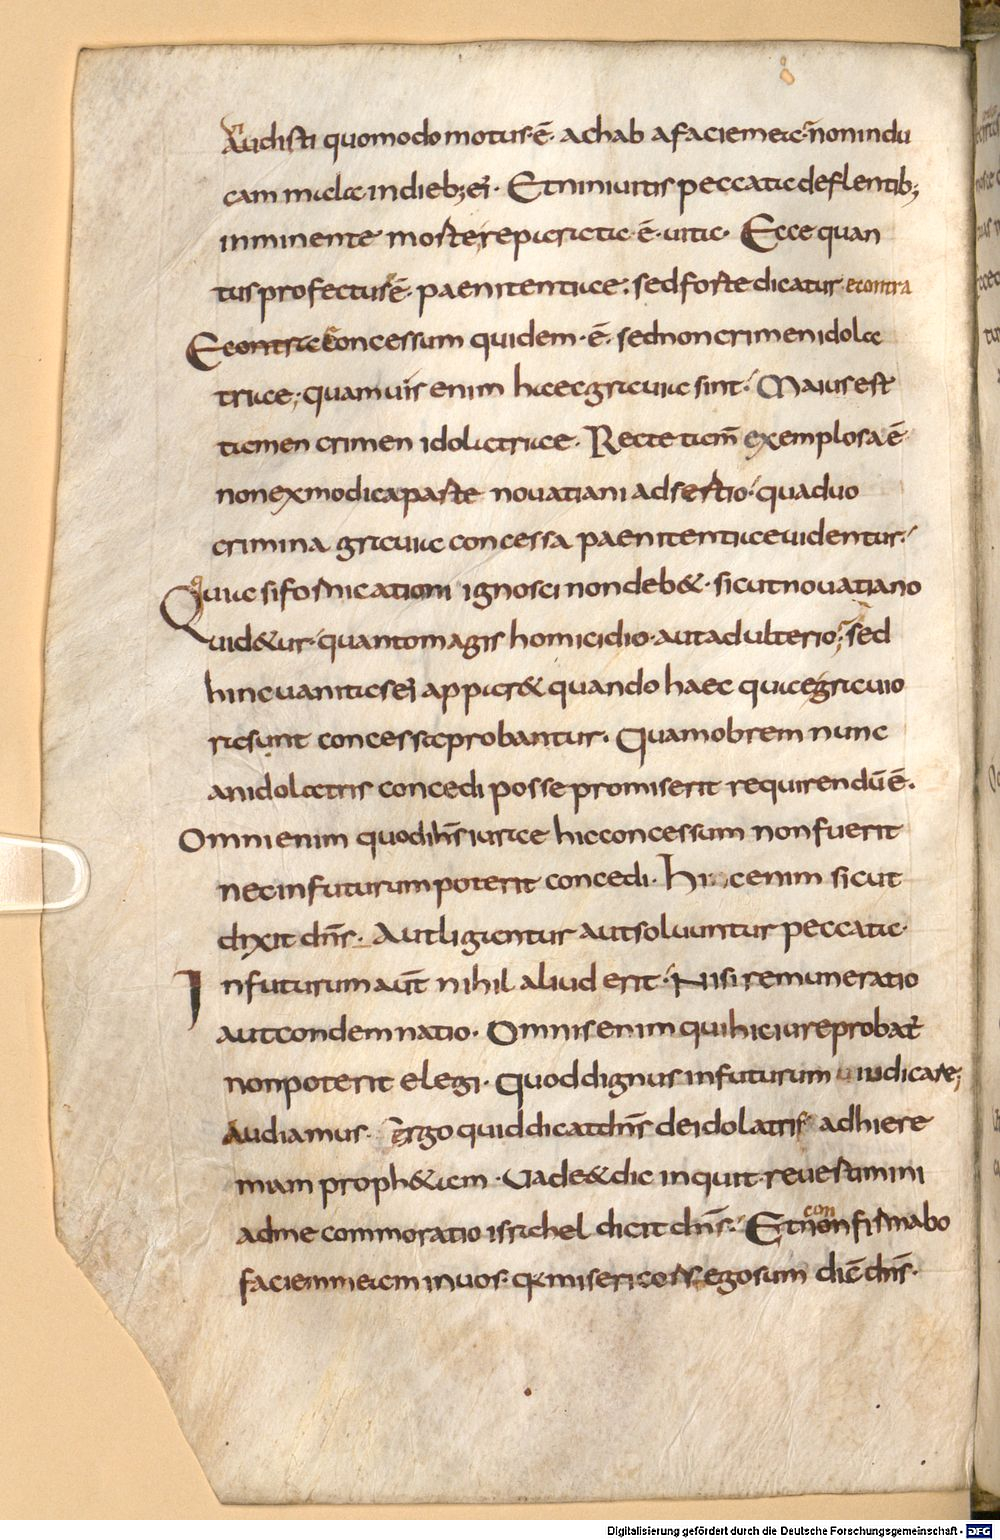 Audisti quomodo motus· ē· achab a faciem ea· non indu
cam mala· in dieb; ei· Et niniuitis peccata deflentib;
inminente morte reparata· ē· uita· Ecce quan
tus profectus ē· paenitentiae: sed forte dicatur econtra
Econtrae Concessum quidem· ē· sed non crimen idola
triae; quamuis enim haec grauia sint· Maius est
tamen crimen idolatriae· Recte tam̄ exemplosa ē·
non ex modica parte nouatiani adsertio· qua duo
crimina grauia concessa paenitentiae uidentur·
Quia si fornicationi ignosci non deb&· sicut nouatiano
uid&ur· quanto magis homicidio· aut adulterio; sed
hinc uanitas ei appar& quando haec quae grauio
ra sunt concessa probantur· Quamobrem nunc
an idolatris concedi posse promiserit requirendū ē·
Omni enim quod ihs̄ iurae hic concessum non fuerit
nec in futurum poterit concedi· Hic enim sicut
dixit dn̄s· Aut ligantur aut soluuntur peccata·
In futurum aut̄ nihil aliud erit· Nisi remuneratio
aut condemnatio· Omnis enim qui hic iure probat̄
non poterit elegi· Quod dignus in futurum iudicare;
Audiamus· Ergo quid dicat dn̄s de idolatris adhiere
miam proph&am· Uade & dic inquit· reuertimini
ad me commoratio israhel dicit dn̄s· Et non con firmabo
faciem meam in uos· q misericors ego sum dic̄ dn̄s·
Digitalisierung gefördert durch die Deutsche Forschungsgemeinschaft - DFG